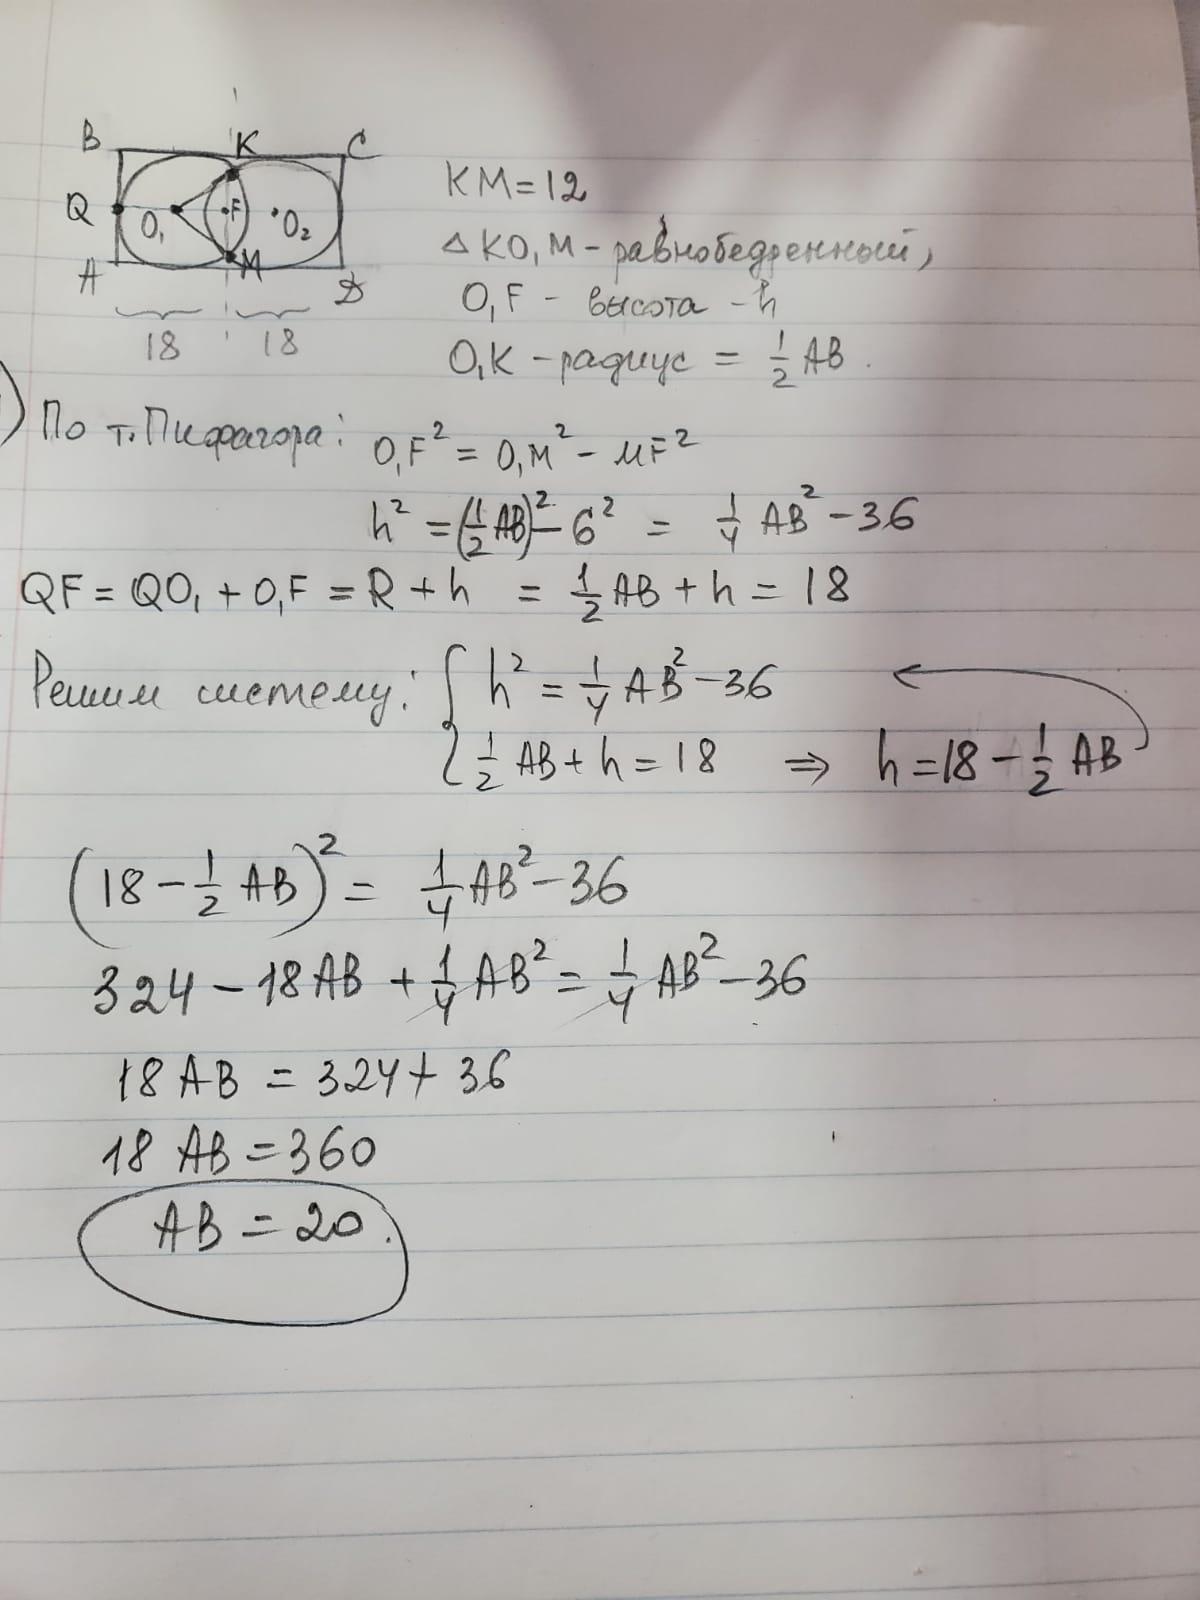 B K C
Q O₁ F O₂
A M D
18 18
KM = 12
△KO₁M - равнобедренный,
O₁F - высота - h
O₁K - радиус = 1/2 AB.
) По т. Пифагора: O₁F² = O₁M² - MF²
h² = (1/2 AB)² - 6² = 1/4 AB² - 36
QF = QO₁ + O₁F = R + h = 1/2 AB + h = 18
Решим систему: { h² = 1/4 AB² - 36
1/2 AB + h = 18 ⇒ h = 18 - 1/2 AB
(18 - 1/2 AB)² = 1/4 AB² - 36
324 - 18AB + 1/4 AB² = 1/4 AB² - 36
18 AB = 324 + 36
18 AB = 360
AB = 20.